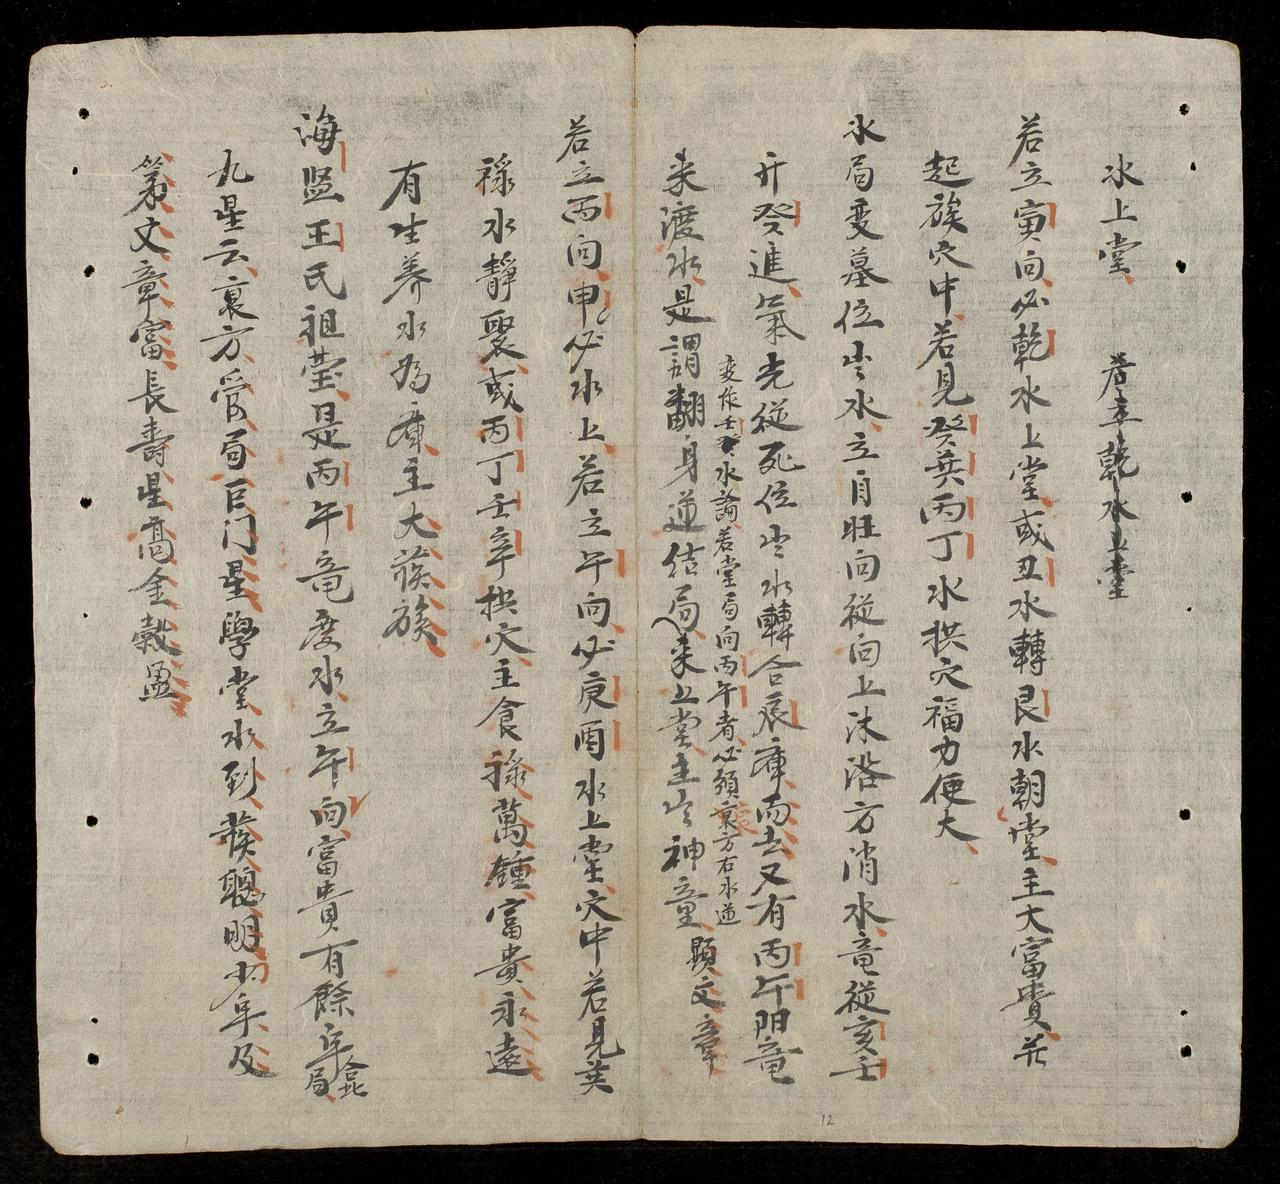 水上堂 若立乾水上堂
若立寅向必乾水上堂或丑水轉艮水朝堂主大富貴並
起族穴中若見癸巽丙丁水拱穴福力便大
水局变墓位出水立自旺向從向上沐浴方消水竜從亥壬
开癸進氣先從死位出水轉合辰庫而去又有丙午陽竜
变作壬癸水論若堂局向丙午者必須衰方右水逆
来渡水是謂翻身逆结局来上堂主出神童顯文章
若立丙向申必水上若立午向必庚酉水上堂穴中若見巽
禄水靜聚或丙丁壬辛拱穴主食禄萬鍾富貴永遠
有生养水為庫主大旺族
海監王氏祖塋是丙午竜度水立午向富貴有餘年
局
九星云衰方受局巨门星學堂水到發聰明少年及
第文章富長壽星高金穀盈